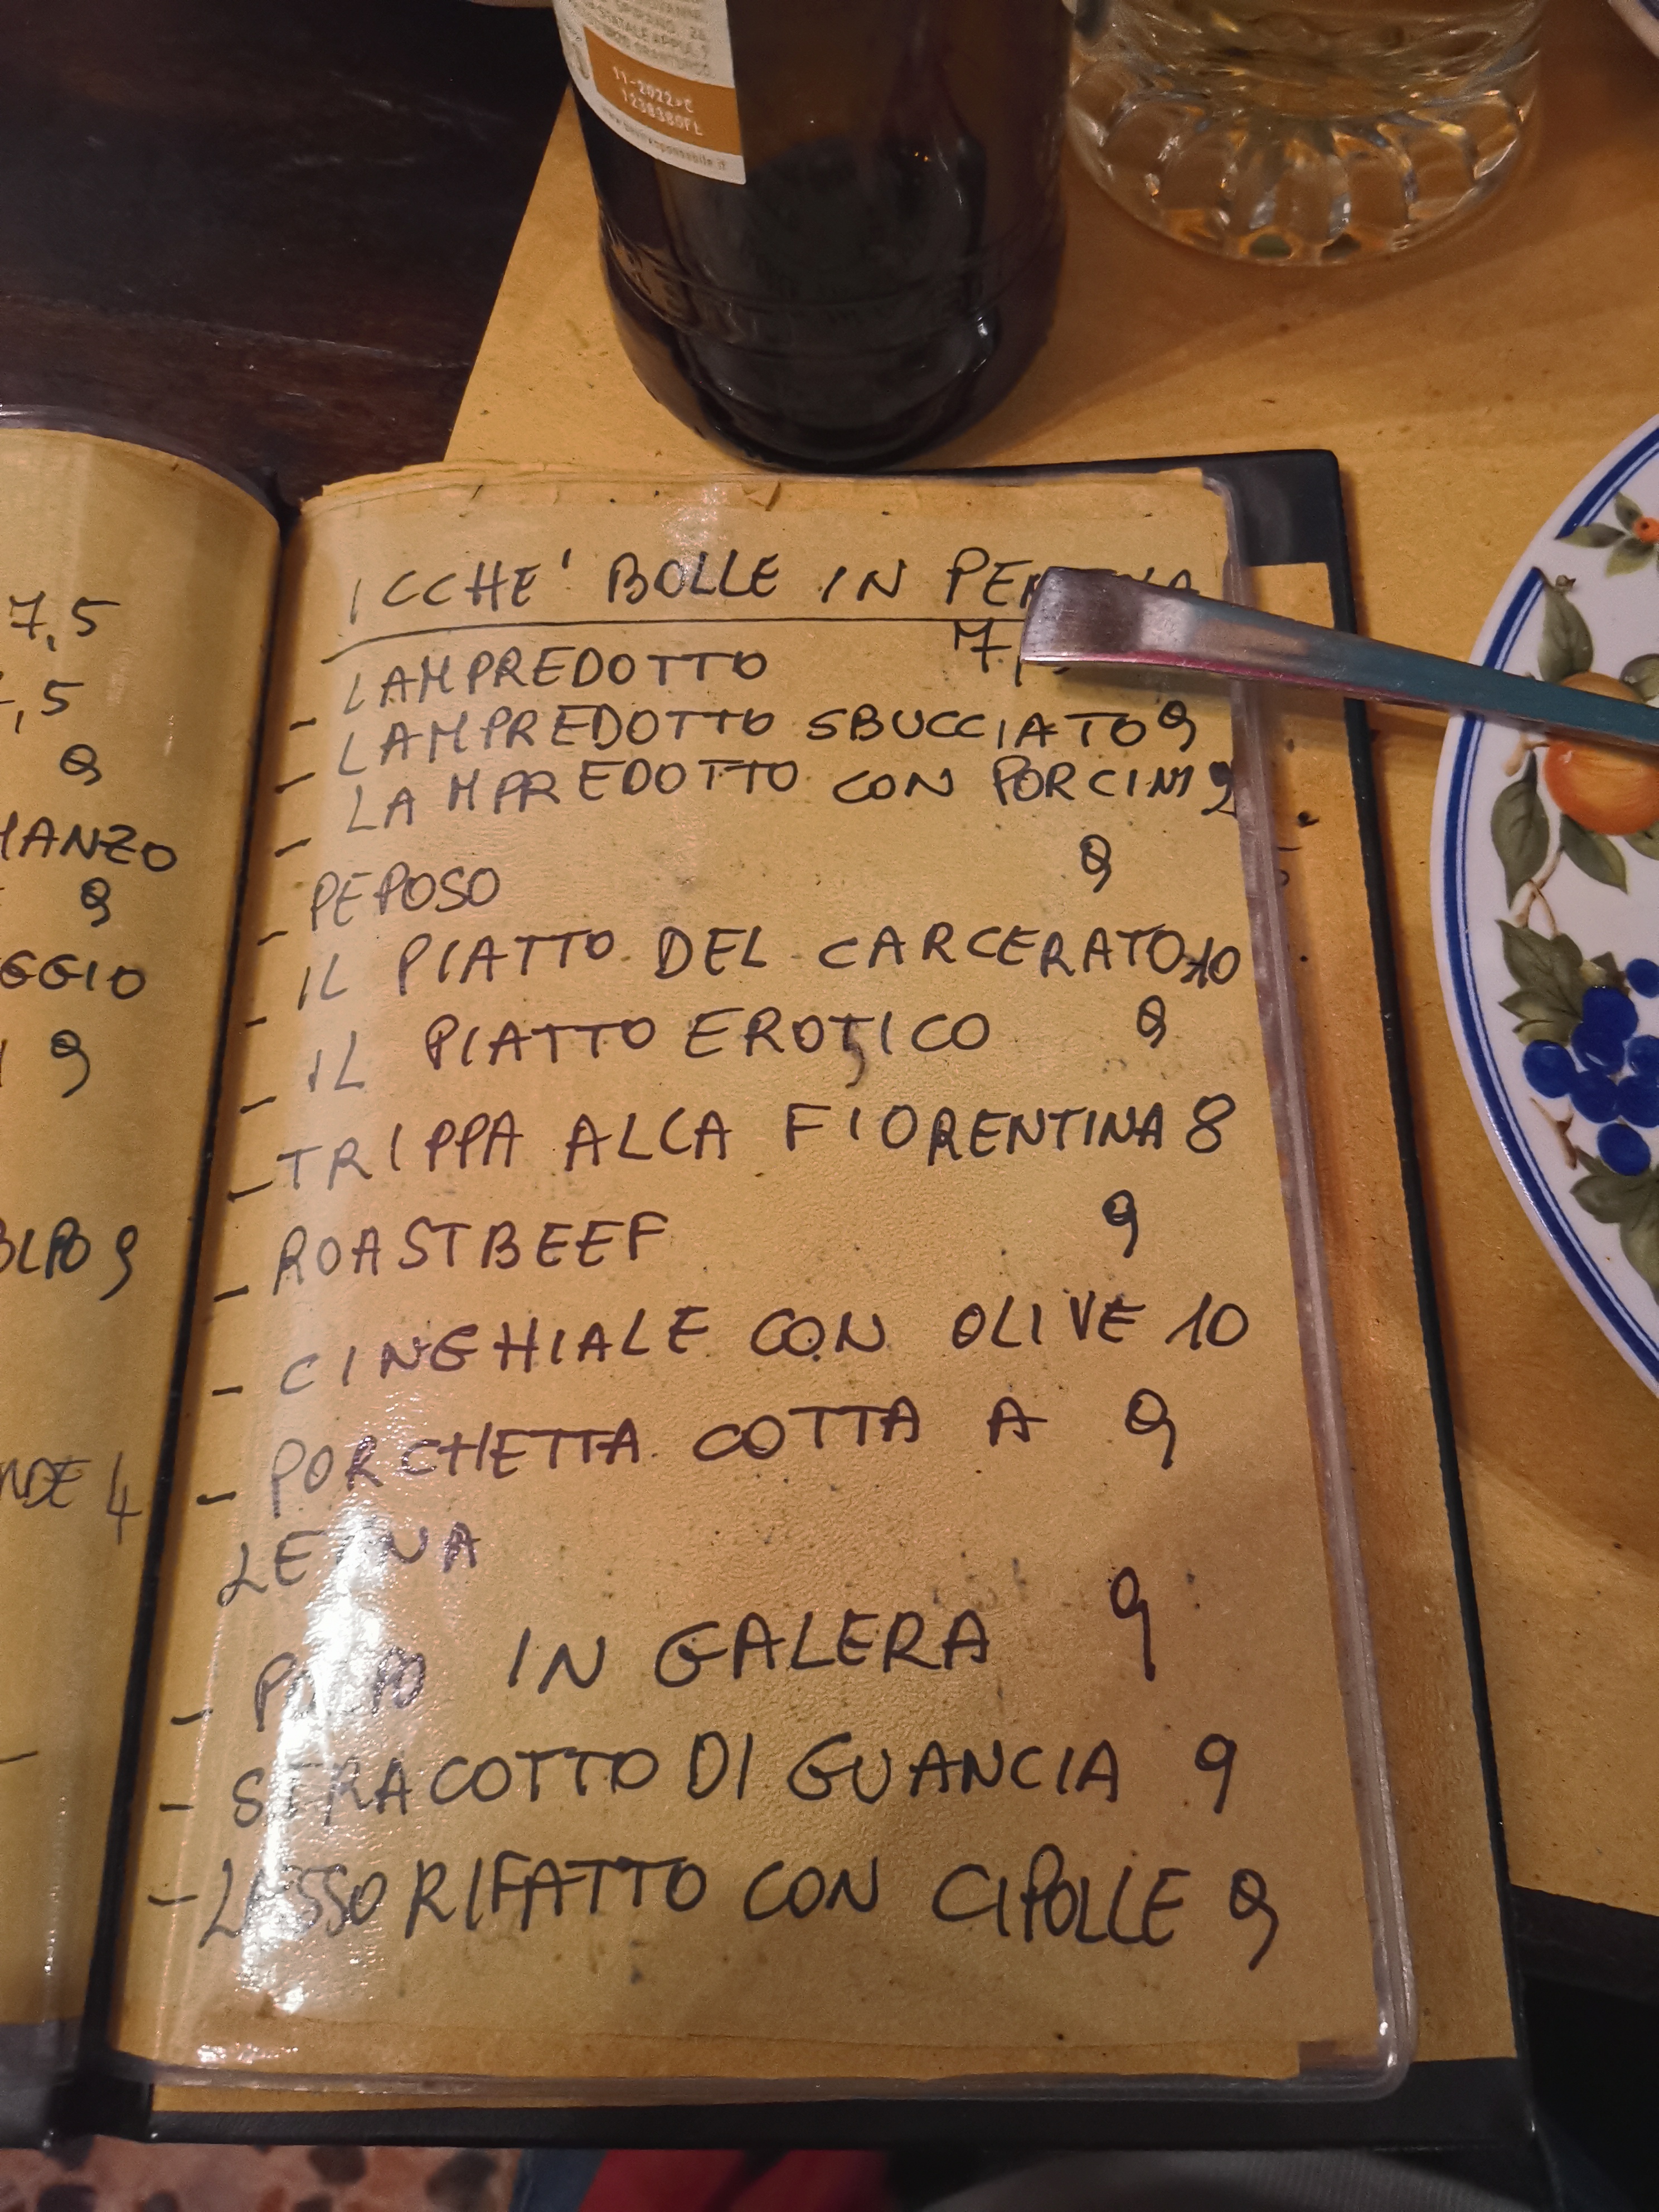 11-2022>C
7,5
,5
9
MANZO
9
GGIO
9
9
NDE 4
ICCHE' BOLLE IN
LAMPREDOTTO 7,
LAMPREDOTTO SBUCCIATO 9
LAMPREDOTTO CON PORCINI 9
PEPOSO 9
IL PIATTO DEL CARCERATO 10
IL PIATTO EROTICO 9
TRIPPA ALLA FIORENTINA 8
ROASTBEEF 9
CINGHIALE CON OLIVE 10
PORCHETTA COTTA A 9
LEGNA
POLPO IN GALERA 9
STRACOTTO DI GUANCIA 9
LESSO RIFATTO CON CIPOLLE 9